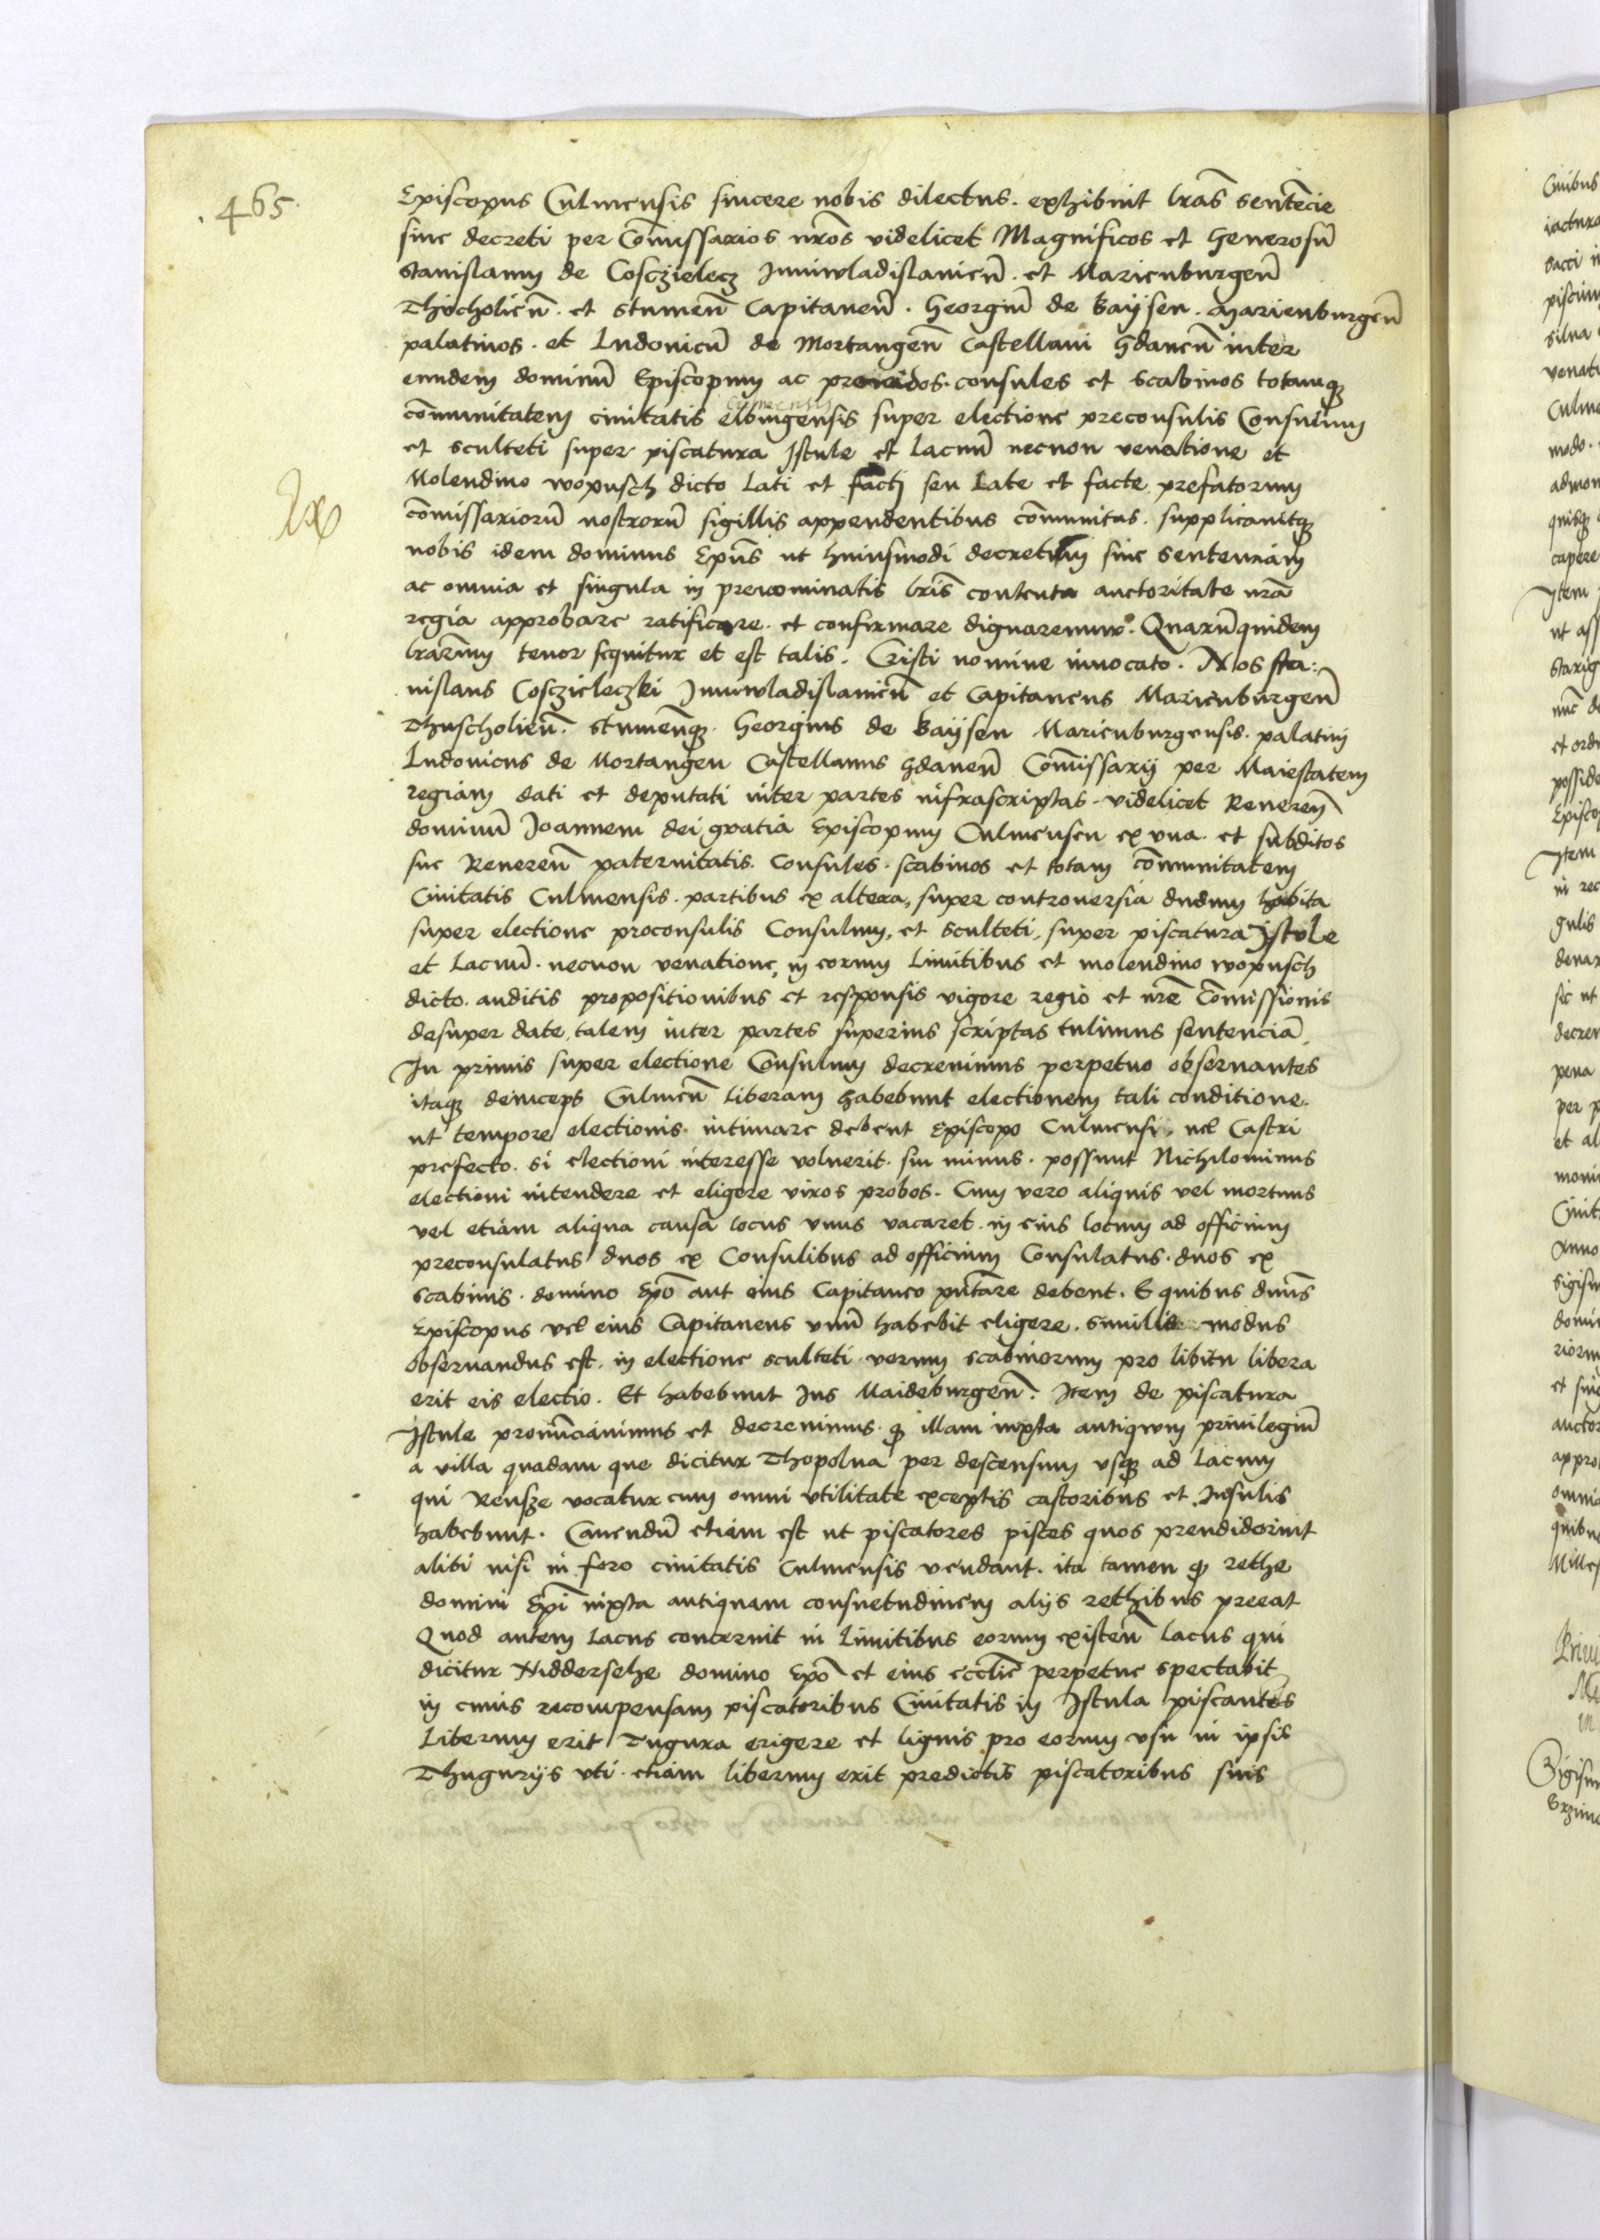 .465.
Episcopus Culmensis sincere nobis dilectus. exhibuit lrãs sentẽcie
siue decreti per Cõmissarios nrõs videlicet Magnificos et Generosũ
Stanislaum de Cosczielecz Juniwladislauieñ. et Marienburgeñ
Thucholieñ. et Stumeñ Capitaneũ. Georgiũ de Baysen. Marienburgeñ
palatinos. et Ludouicũ de Mortangeñ Castellani Gdaneñ inter
eundem dominũ Episcopum ac prouidos. consules et scabinos totamq
Culmensis
cõmunitatem ciuitatis elbingensis super electione preconsulis Consulum
et sculteti super piscatura Istule et Lacuũ necnon venatione et
Molendino wopusch dicto Lati et facti seu Late et facte prefatorum
Lx
cõmissariorũ nostrorũ sigillis appendentibus cõmunitas. supplicauitq
nobis idem dominus Epũs ut huiusmodi decretum siue sentenciam
ac omnia et singula in prenominatis lrīs contenta auctoritate nrã
regia approbare ratificare. et confirmare dignaremur. Quarũquidem
lrãrum tenor sequitur et est talis. Cristi nomine inuocato. Nos Sta:
nislaus Cosczieleczki Juniwladislauieñ et Capitaneus Marienburgeñ
Thuscholieñ. Stumeñq. Georgius de Baysen Marienburgensis. palatini
Ludouicus de Mortangen Castellanus Gdaneñ Cõmissarij per Maiestatem
regiam dati et deputati inter partes infrascriptas. videlicet Reuereñ
dominũ Joannem dei gratia Episcopum Culmensen ex vna. et subditos
sue Reuereñ paternitatis. Consules. scabinos et totam cõmunitatem
Ciuitatis Culmensis. partibus ex altera, super controuersia dudum habita
super electione proconsulis Consulum, et Sculteti, super piscatura Istule
et Lacuũ. necnon venatione, in eorum Limitibus et molendino wopusch
dicto. auditis propositionibus et responsis vigore regio et nrẽ Cõmissionis
desuper date, talem inter partes superius scriptas tulimus sentenciã,
In primis super electione Consulum decreuimus perpetuo obseruantes
itaq deinceps Culmeñ Liberam habebunt electionem tali conditione.
ut tempore electionis. intimare debent Episcopo Culmensi, uel Castri
prefecto. si electioni interesse voluerit. sin minus. possunt Nichilominus
electioni intendere et eligere viros probos. Cum vero aliquis vel mortuus
vel etiam aliqua causa locus vnus vacaret. in eius locum ad officium
preconsulatus duos ex Consulibus ad officium Consulatus. duos ex
scabinis. domino Epõ aut eius Capitaneo pñtare debent. E quibus dñus
Episcopus vel eius Capitaneus vnũ habebit eligere. Similis modus
obseruandus est. in electione sculteti verum scabinorum pro libitu libera
erit eis electio. Et habebunt Jus Maideburgeñ. Item de piscatura
Istule pronũciauimus et decreuimus. q illam iuxta antiqwum priuilegiũ
a villa quadam que dicitur Thopolna per descensum vsq ad Lacum
qui Rensze vocatur cum omni vtilitate exceptis castoribus et Insulis
habebunt. Cauendũ etiam est ut piscatores pisces quos prendiderint
alibi nisi in foro ciuitatis Culmensis vendant. ita tamen q rethe
domini Epĩ iuxta antiquam consuetudinem alijs rethibus preeat
Quod autem Lacus concernit in Limitibus eorum existeñ Lacus qui
dicitur Niddersehe domino Epõ et eius ecclīe perpetue spectabit
in cuius recompensam piscatoribus Ciuitatis in Istula piscantes
Liberum erit Tugura erigere et lignis pro eorum vsu in ipsis
Thugurijs vti. etiam liberum erit predictis piscatoribus suis